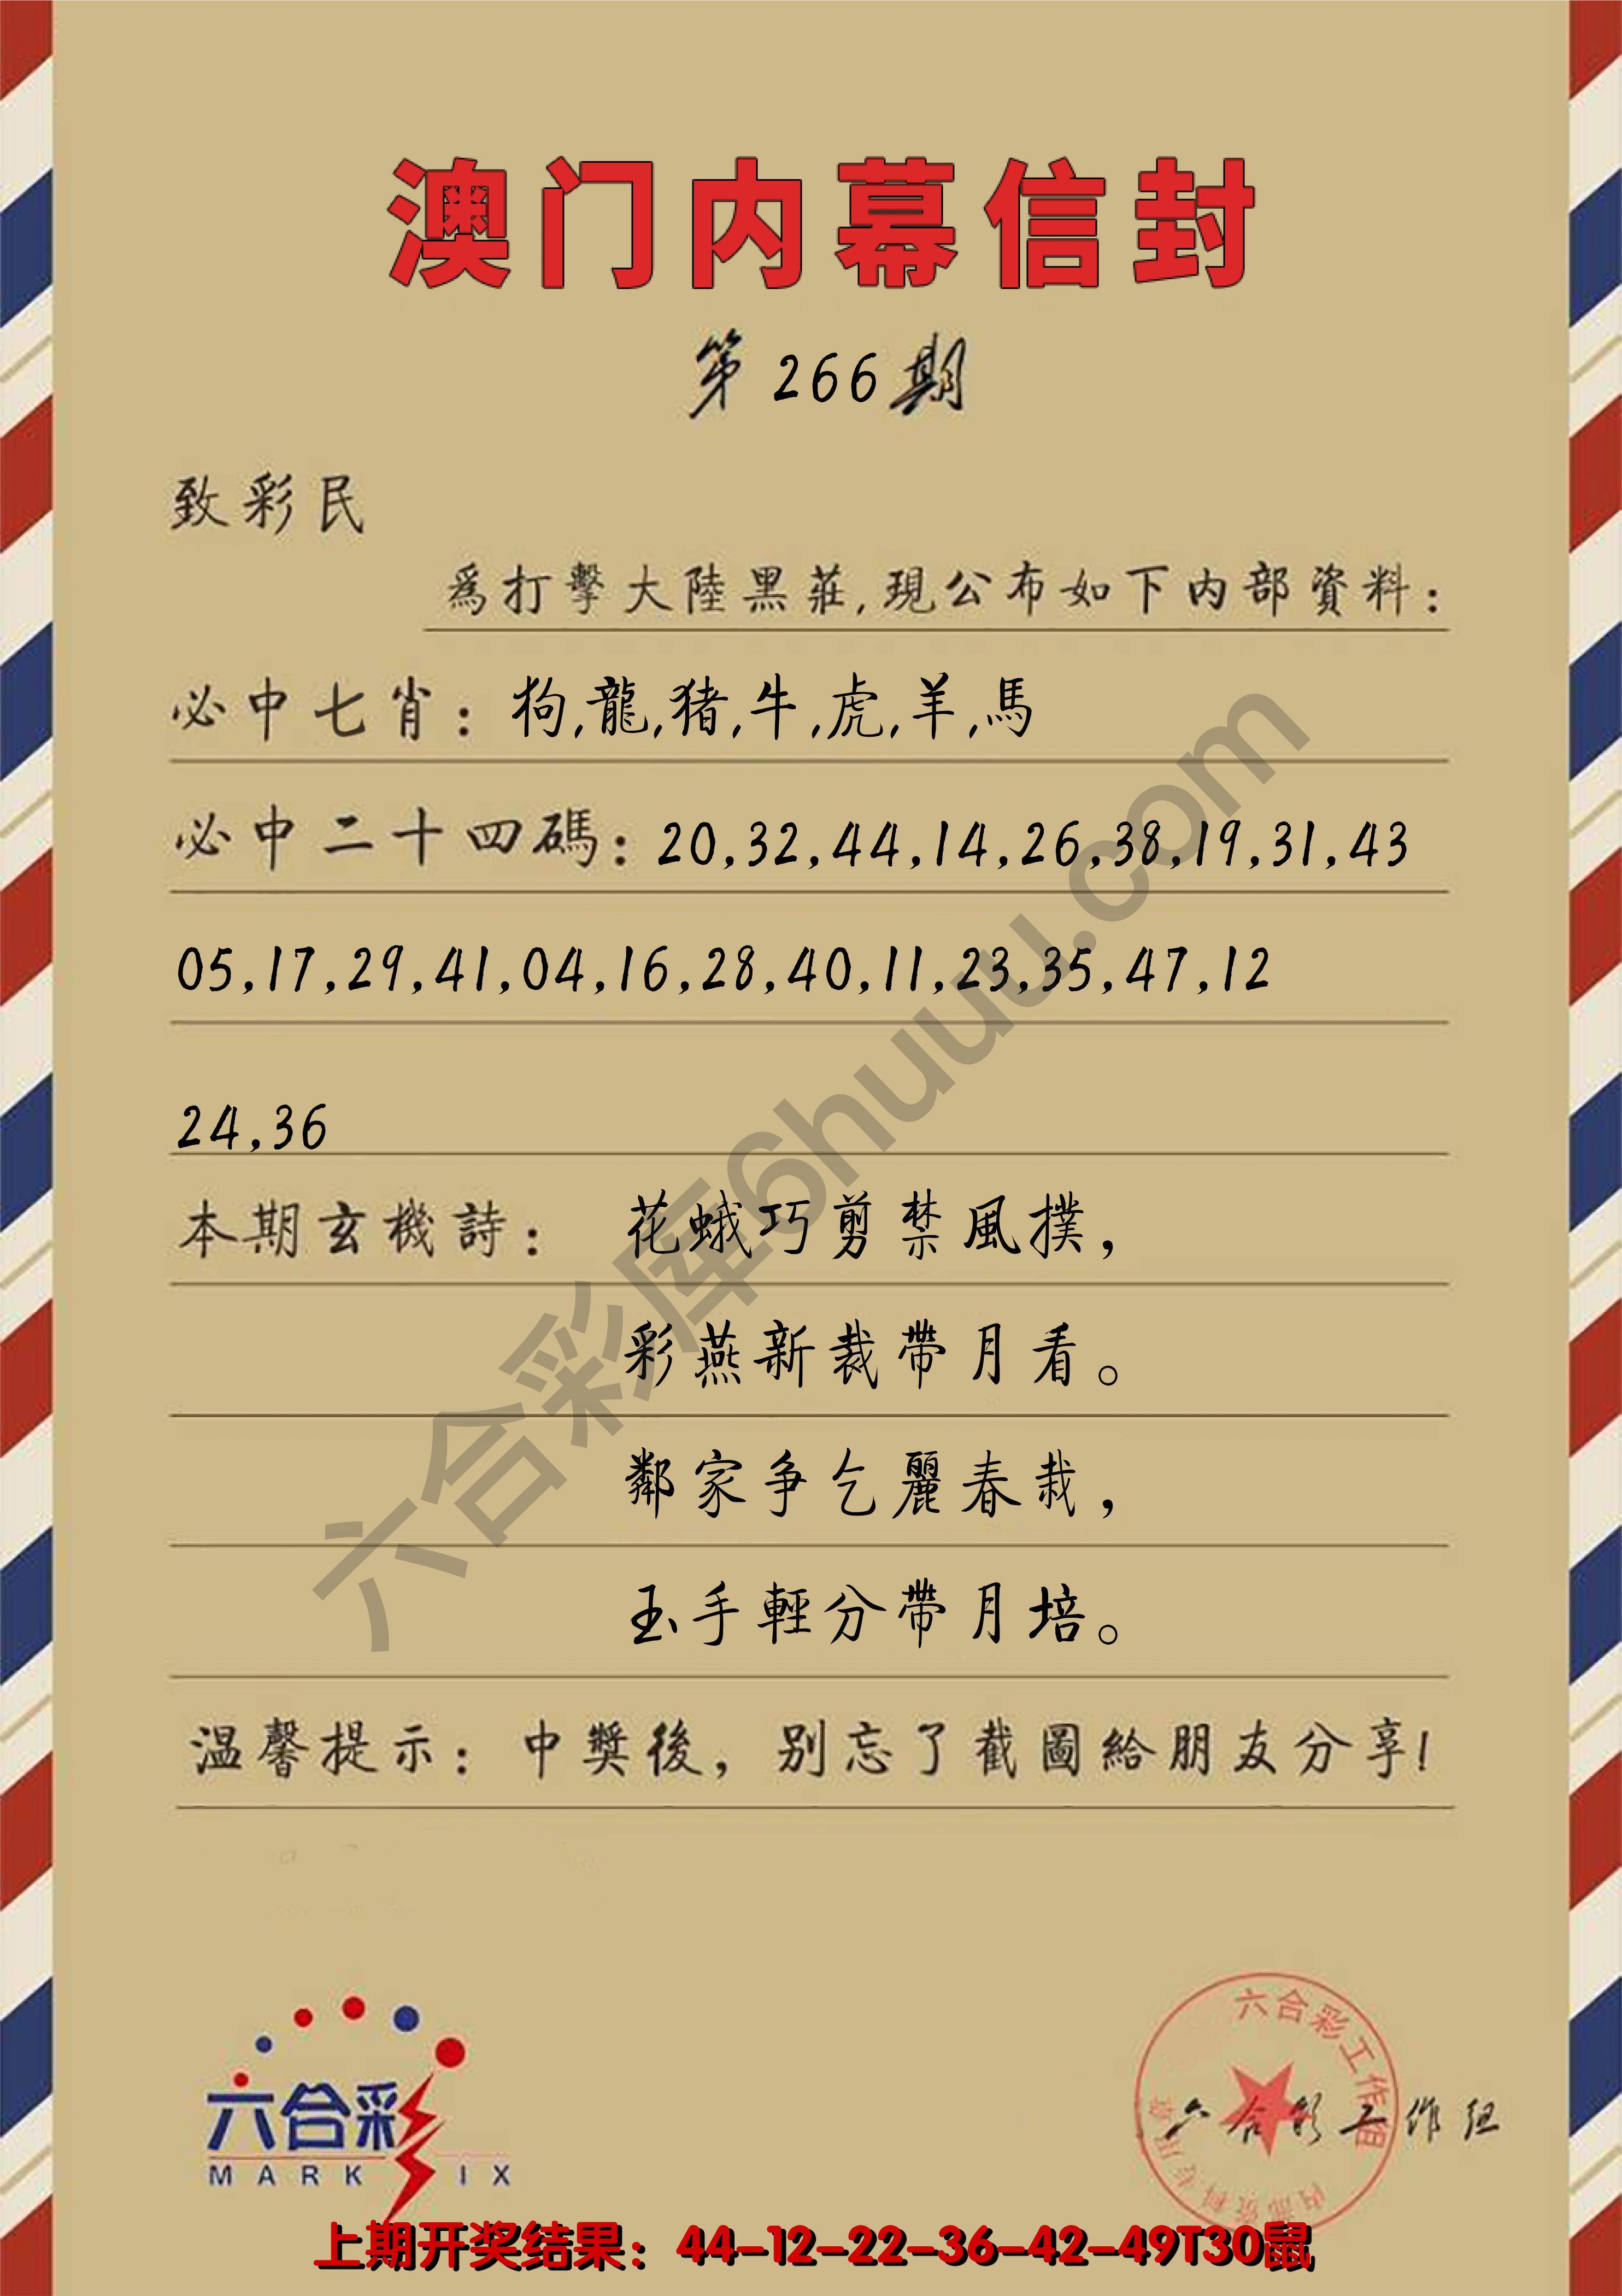 澳门内幕信封
第266期
致彩民
爲打擊大陸黑莊,現公布如下内部資料：
必中七肖：狗,龍,猪,牛,虎,羊,馬
必中二十四碼：20,32,44,14,26,38,19,31,43
05,17,29,41,04,16,28,40,11,23,35,47,12
24,36
本期玄機詩：花蛾巧剪禁風撲，
彩燕新裁帶月看。
鄰家争乞麗春栽，
玉手輕分帶月培。
温馨提示：中獎後，别忘了截圖給朋友分享!
六合彩库6huuu.com
六合彩
MARK SIX
六合彩工作组
内部资料专用章
六合彩工作组
上期开奖结果：44-12-22-36-42-49T30鼠